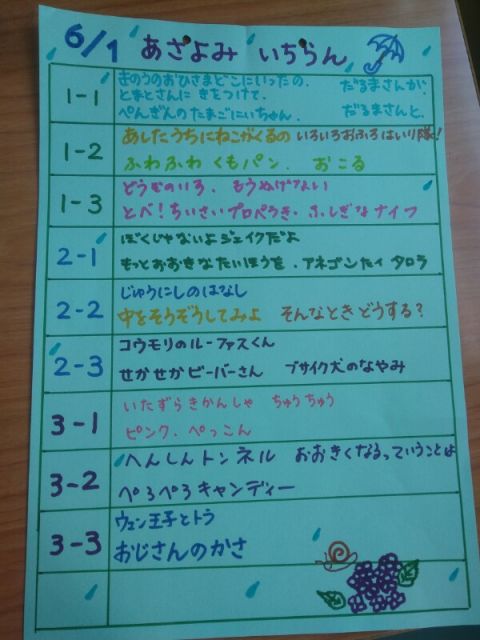 6/1 あさよみ いちらん
1-1
きのうのおひさまどこにいったの. だるまさんが.
とまとさんに きをつけて.
ぺんぎんのたまごにいちゃん. だるまさんと.
1-2
あしたうちにねこがくるの いろいろおふろはいり隊!
ふわふわ くもパン. おこる
1-3
どうぞのいろ. もうぬげない
とべ!ちいさいプロペラき. ふしぎなナイフ
2-1
ぼくじゃないよジェイクだよ
もっとおおきなたいほうを. アネゴンたィ タロラ
2-2
じゅうにしのはなし
中をそうぞうしてみよ そんなときどうする?
2-3
コウモリのルーファスくん
せかせかビーバーさん ブサイク犬のなやみ
3-1
いたずらきかんしゃ ちゅうちゅう
ピンク. ぺっこん
3-2
へんしんトンネル おおきくなるっていうことは
ぺろぺろキャンディー
3-3
ウェン王子とトラ
おじさんのかさ